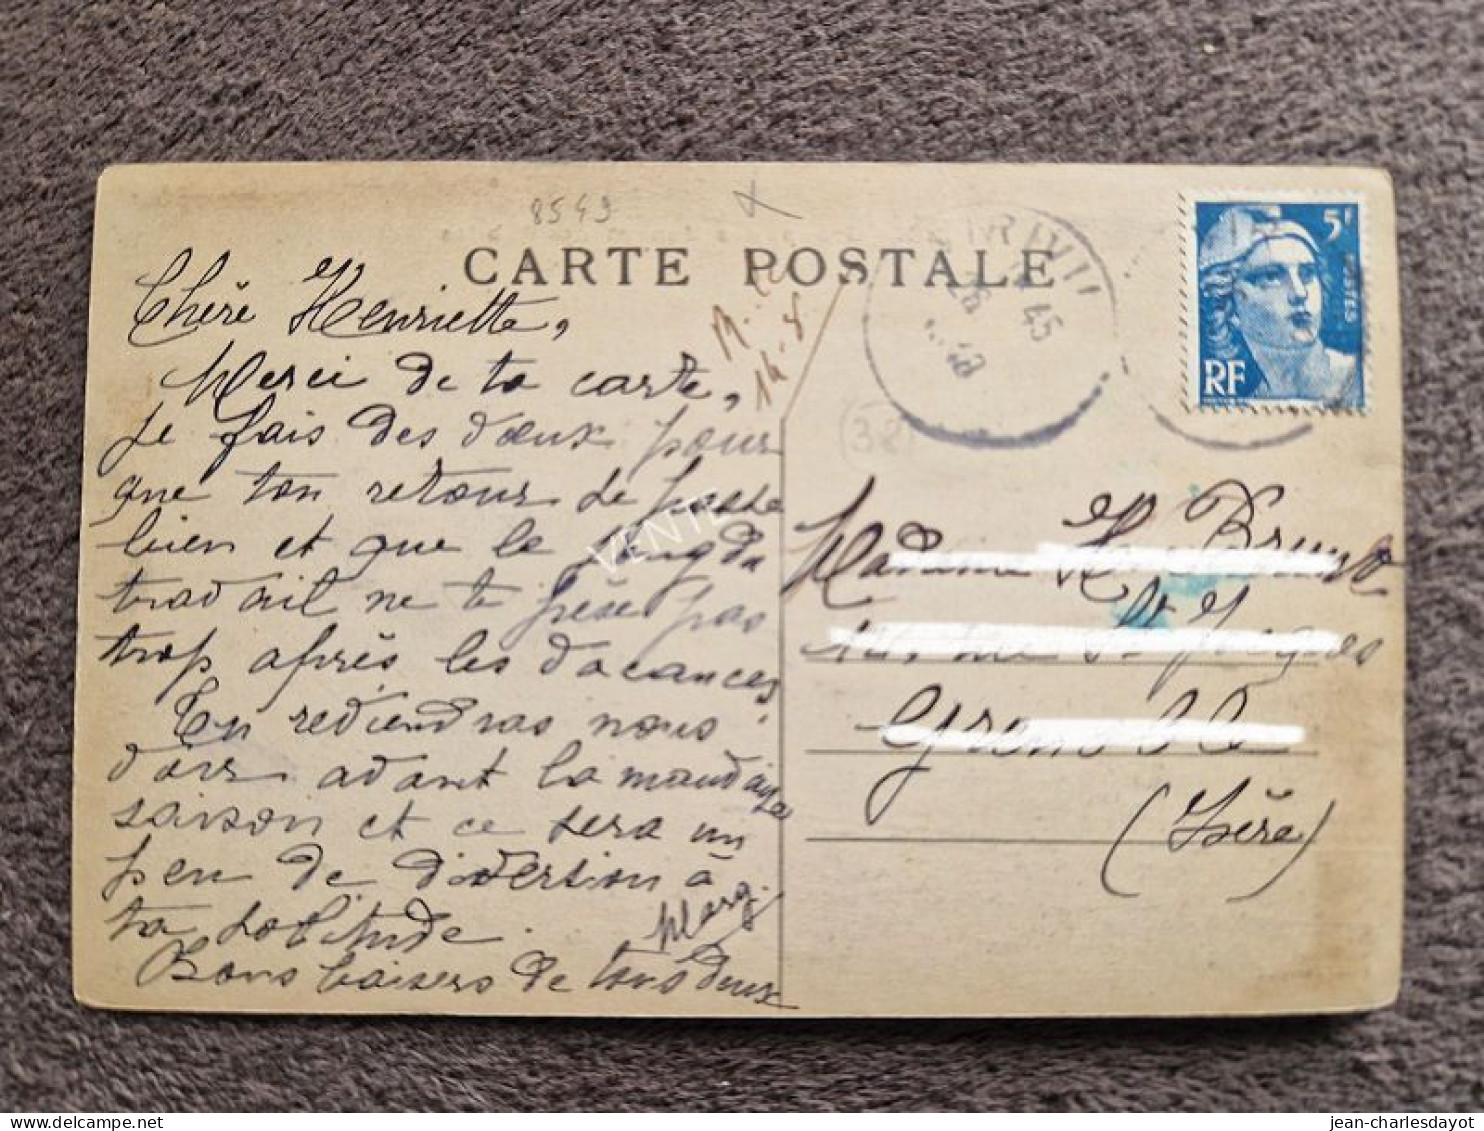 8549
CARTE POSTALE
Chère Henriette,
Merci de ta carte,
je fais des vœux pour
que ton retour se passe
bien et que le
travail ne te pèse pas
trop après les vacances.
Tu reviendras nous
voir avant la mauvaise
saison et ce sera un
peu de diversion à
ta solitude.
Bons baisers de tous deux
Marg.
14-8
(38)
45
5F
POSTES
RF
Madame H.
rue St Jacques
Grenoble
(Isère)
VENTE
jean-charlesdayot